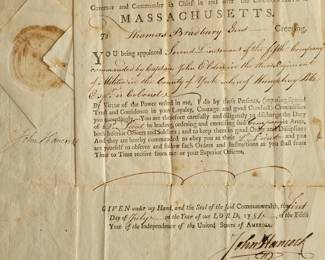 Governor and Commander in Chief in and over the Commonwealth
MASSACHUSETTS.
To Thomas Bradbury Gent Greeting.
YOU being appointed Second Lieutenant of the fifth Company
commanded by Captain John Elden in the third Regiment
of Militia in the County of York whereof
Esqr is Colonel
By Virtue of the Power vested in me, I do by these Presents, (reposing special
Trust and Confidence in your Loyalty, Courage and good Conduct) Commission
you accordingly. You are therefore carefully and diligently to discharge the Duty
of in leading, ordering and exercising said Company in Arms,
both inferior Officers and Soldiers; and to keep them in good Order and Discipline:
And they are hereby commanded to obey you as their and you
are yourself to observe and follow such Orders and Instructions as you shall from
Time to Time receive from me or your Superior Officers.
John Hancock
GIVEN under my Hand, and the Seal of the said Commonwealth, the first
Day of July in the Year of our LORD, 1781 of the
Year of the Independence of the United States of AMERICA.
John Hancock